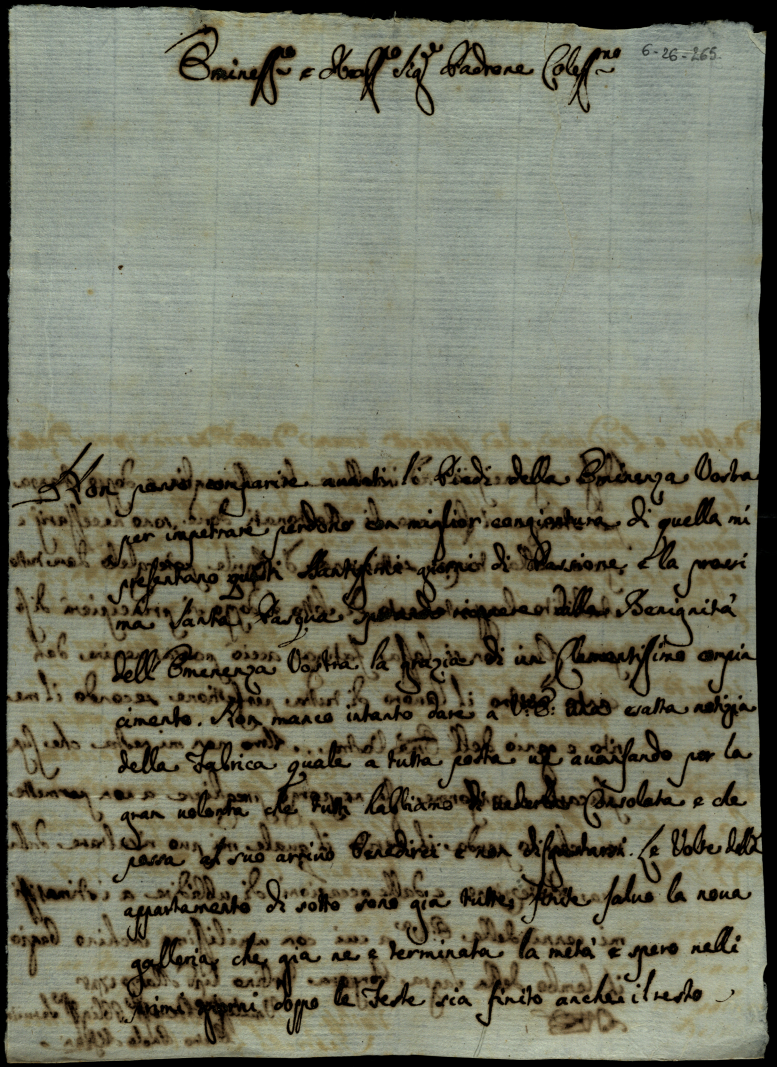 6-26-265
Eminess.mo e Rev.ss.mo Sig.re Padrone Coless.mo
Non posso comparire avanti li Piedi della Eminenza Vostra
per impetrare perdono con miglior congiontura di quella mi
presentano questi Santissimi giorni di Passione, e la prossi
ma Santa Pasqua sperando dalla Benignità
dell Eminenza Vostra la grazia di un Clementissimo compia
cimento. Non manco intanto dare a V.E. esatta notizia
della Fabrica quale a tutta posta va avansando per la
gran volontà che tutti habbiamo di vederla Consolata e che
possa al suo arrivo benedirci e non disgustarsi. Le Volte dell
appartamento di sotto sono già tutte finite salvo la nova
galleria, che già ne e terminata la metà e spero nelli
primi giorni doppo le Feste sia finito anche il resto